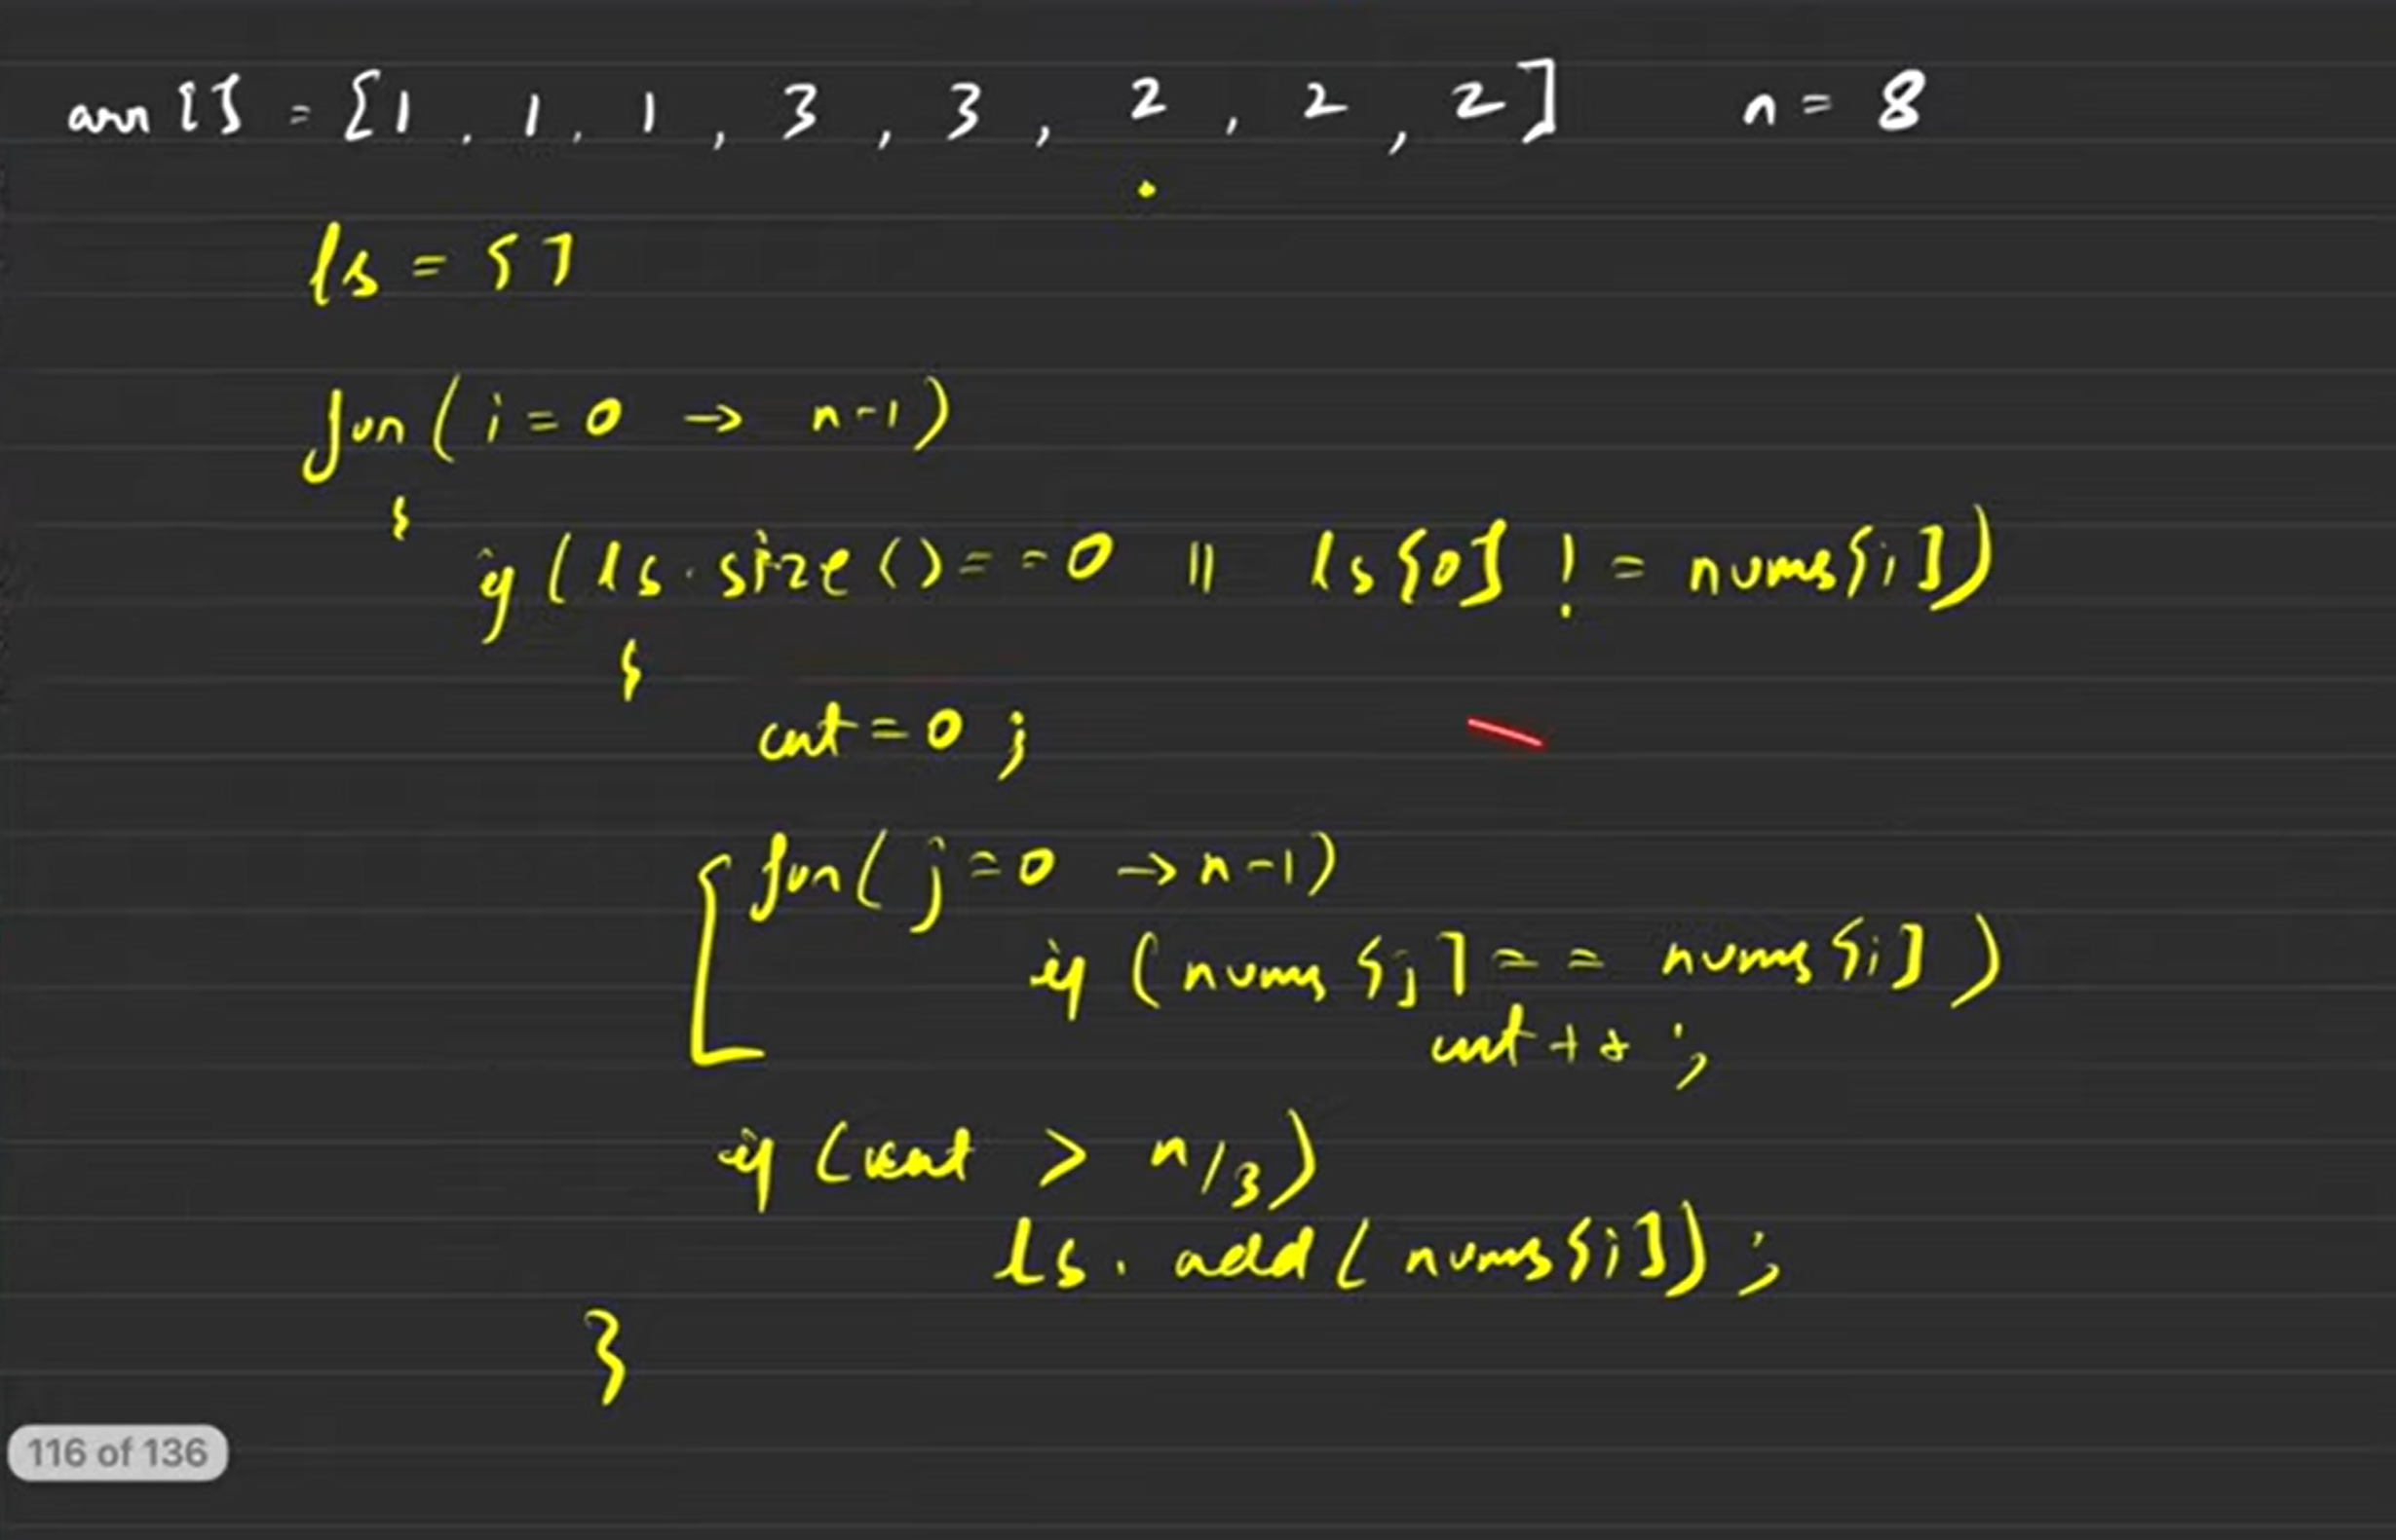 arr[] = {1, 1, 1, 3, 3, 2, 2, 2} n = 8
ls = []
for(i=0 → n-1)
{
if(ls.size()==0 || ls[0] != nums[i])
{
cnt=0;
for(j=0 → n-1)
if(nums[j]== nums[i])
cnt++;
if(cnt > n/3)
ls.add(nums[i]);
}
116 of 136